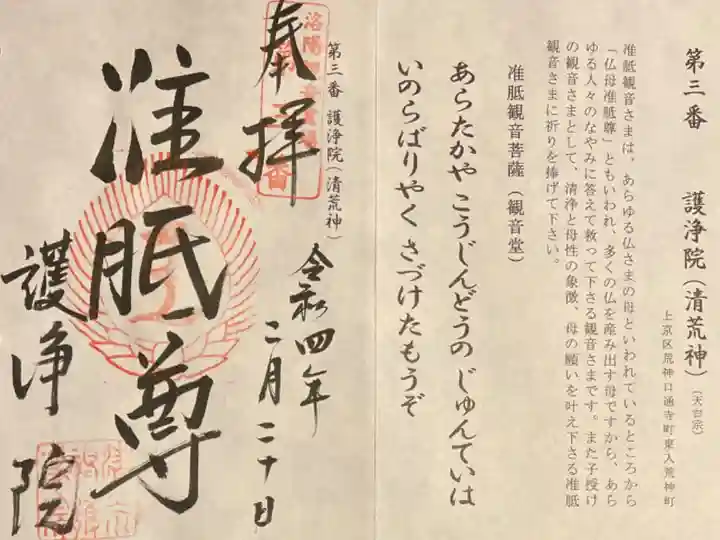 第三番 護浄院(清荒神)(天台宗)
上京区荒神口通寺町東入荒神町
准胝観音さまは、あらゆる仏さまの母といわれているところから
「仏母准胝尊」ともいわれ、多くの仏を産み出す母ですから、あら
ゆる人々のなやみに答えて救って下さる観音さまです。また子授け
の観音さまとして、清浄と母性の象徴、母の願いを叶え下さる准胝
観音さまに祈りを捧げて下さい。
准胝観音菩薩(観音堂)
あらたかや こうじんどうの じゅんていは
いのらばりやく さづけたもうぞ
第三番 護浄院(清荒神)
奉拝
令和四年
二月二十日
准胝尊
護浄院